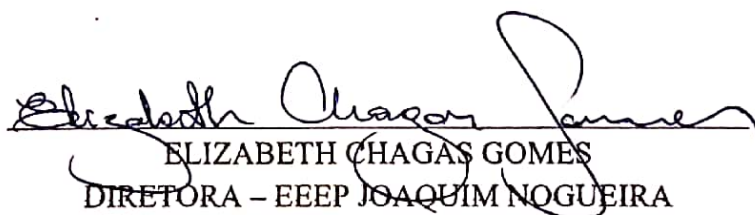 Elizabeth Chagas Gomes
ELIZABETH CHAGAS GOMES
DIRETORA – EEEP JOAQUIM NOGUEIRA